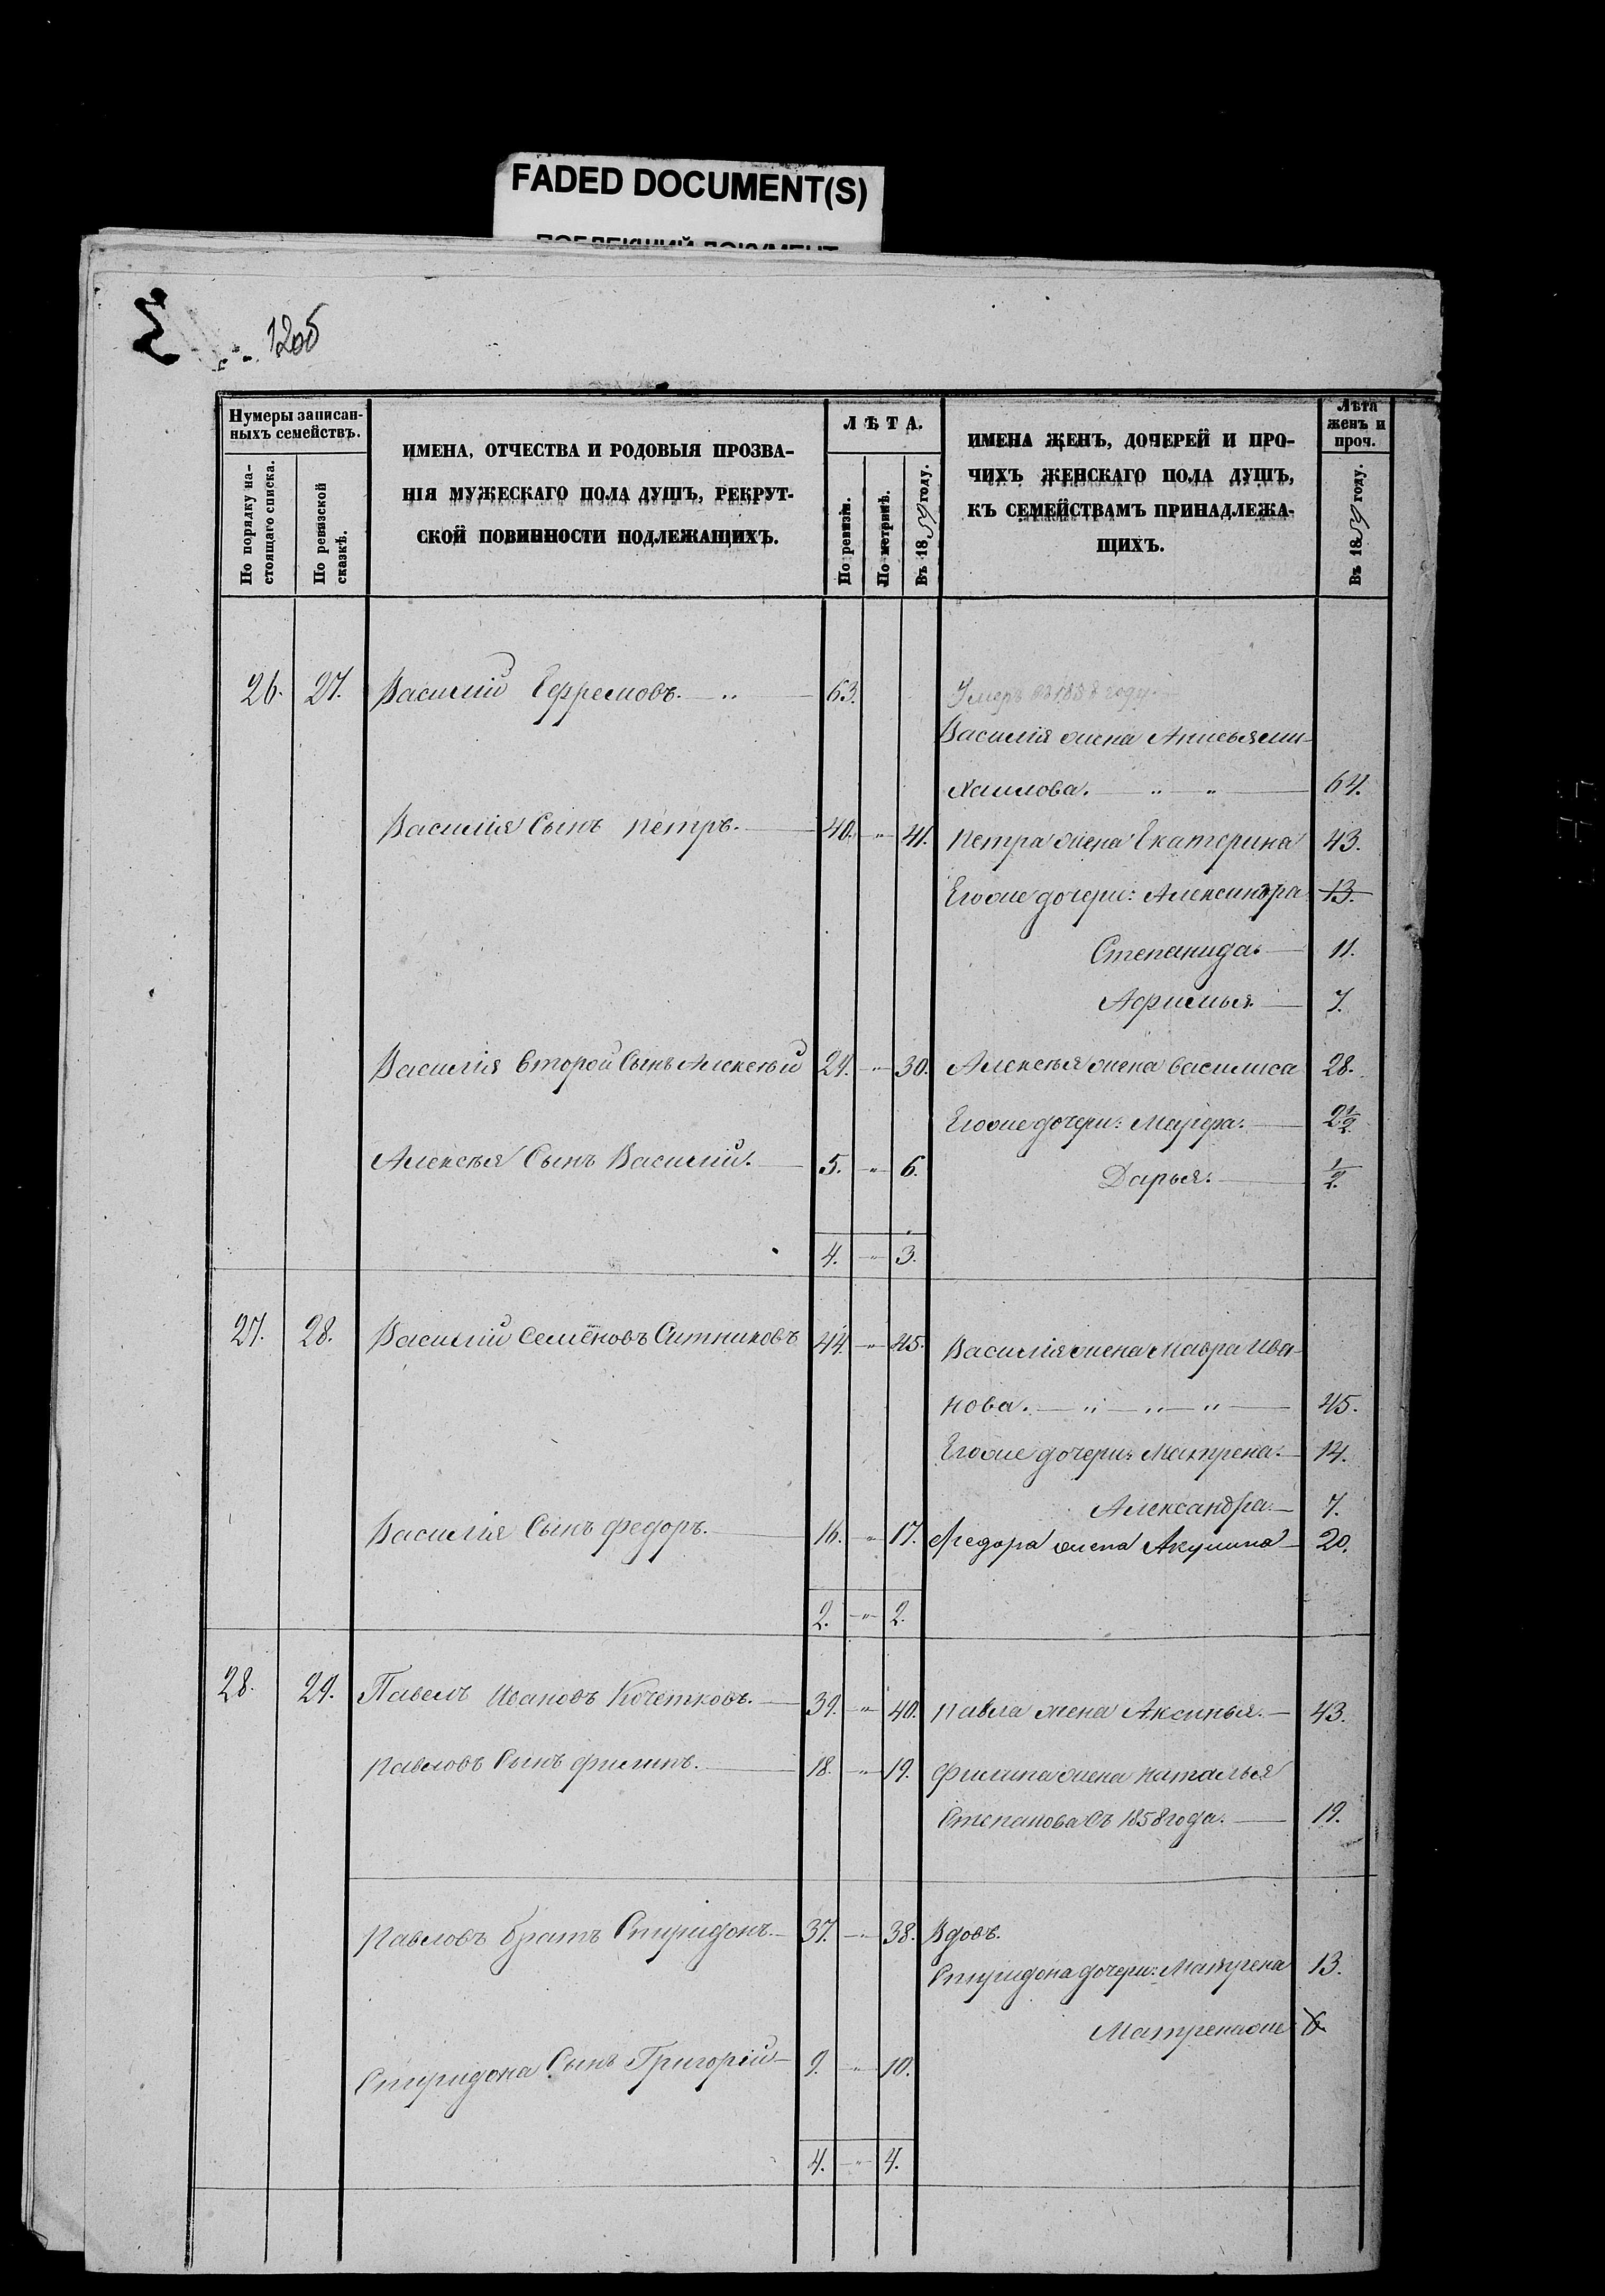 FADED DOCUMENT(S)
1205
Нумеры записан-
ныхъ семействъ.
По порядку на-
стоящаго списка.
По ревизской
сказкѣ.
ИМЕНА, ОТЧЕСТВА И РОДОВЫЯ ПРОЗВА-
НІЯ МУЖЕСКАГО ПОЛА ДУШЪ, РЕКРУТ-
СКОЙ ПОВИННОСТИ ПОДЛЕЖАЩИХЪ.
ЛѢТА.
По ревизіи.
По метрикѣ.
Въ 1859 году.
ИМЕНА ЖЕНЪ, ДОЧЕРЕЙ И ПРО-
ЧИХЪ ЖЕНСКАГО ПОЛА ДУШЪ,
КЪ СЕМЕЙСТВАМЪ ПРИНАДЛЕЖА-
ЩИХЪ.
Лѣта
женъ и
проч.
Въ 1859 году.
26. 27. Василій Ефремовъ. 63. Умеръ въ 1858 году.
Василія жена Анисья Ми-
хаилова. 64.
Василія Сынъ Петръ. 40. 41. Петра жена Екатерина 43.
Егоже дочери: Александра 13.
Степанида. 11.
Афимья. 7.
Василія второй Сынъ Алексѣй 29. 30. Алексѣя жена Василиса 28.
Егоже дочери: Марфа. 2 1/2
Алексѣя Сынъ Василій. 5. 6.
Дарья. 1/2.
4. 3.
27. 28. Василій Семёновъ Ситниковъ 44. 45. Василія жена Мавра Ива-
нова. 45.
Егоже дочери: Матрена. 14.
Александра. 7.
Василія Сынъ Федоръ. 16. 17. Федора жена Акулина 20.
2. 2.
28. 29. Павелъ Ивановъ Кочетковъ. 39. 40. Павла жена Аксинья. 43.
Павловъ Сынъ Филипъ. 18. 19. Филипа жена Наталья
Степанова Съ 1858 года. 19.
Павловъ братъ Спиридонъ. 37. 38. Вдовъ.
Спиридона дочери: Матрена 13.
Матрена же 6.
Спиридона Сынъ Григорій 9. 10.
4. 4.